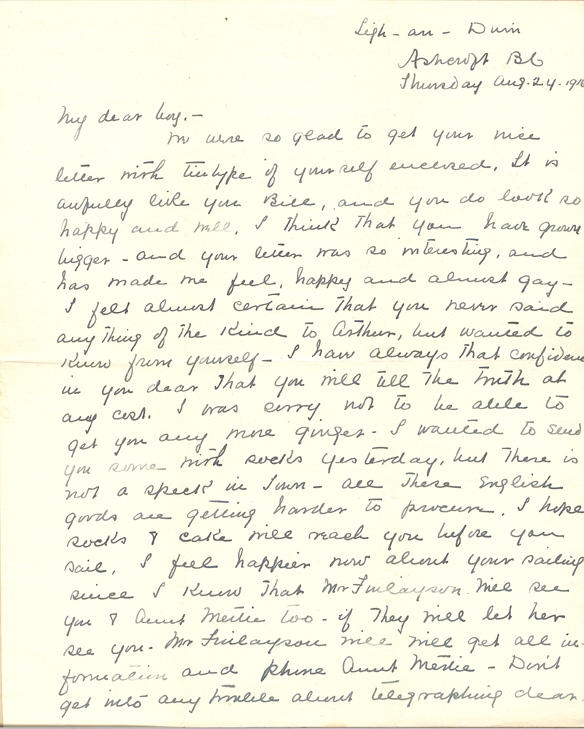 Ligh-an-Duin
Ashcroft BC
Thursday Aug. 24. 1916
My dear boy.-
We were so glad to get your nice
letter with tintype of yourself enclosed. It is
awfully like you Bill, and you do look so
happy and well. I think that you have grown
bigger - and your letter was so interesting, and
has made me feel, happy and almost gay-
I felt almost certain that you never said
anything of the kind to Arthur, but wanted to
know from yourself - I have always that confidence
in you dear that you will tell the truth at
any cost. I was sorry not to be able to
get you any more ginger - I wanted to send
you some with socks yesterday, but there is
not a speck in town - all these English
goods are getting harder to procure. I hope
socks & cake will reach you before you
sail. I feel happier now about your sailing
since I know that Mr Finlayson will see
you & Aunt Mettie too - if they will let her
see you - Mr Finlayson will get all in-
formation and phone Aunt Mettie - Don't
get into any trouble about telegraphing dear-